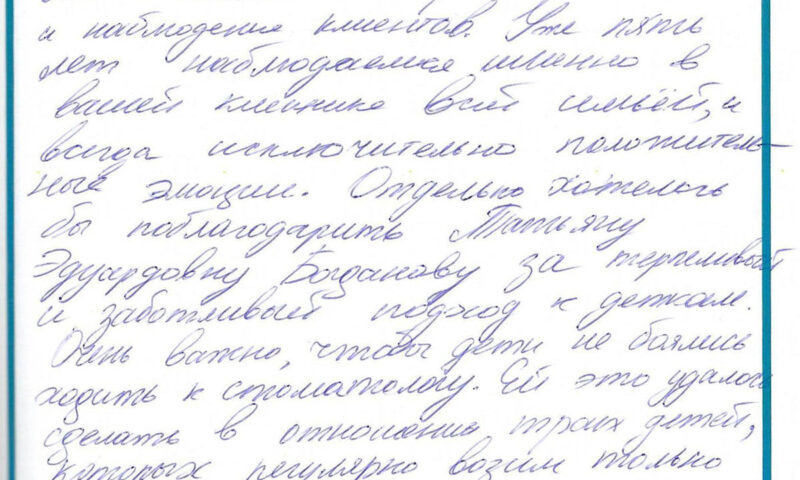 и наблюдения клиентов. Уже пять
лет наблюдаемся именно в
вашей клинике всей семьёй, и
всегда исключительно положитель-
ные эмоции. Отдельно хотелось
бы поблагодарить Татьяну
Эдуардовну Богданову за терпеливый
и заботливый подход к деткам.
Очень важно, чтобы дети не боялись
ходить к стоматологу. Ей это удалось
сделать в отношении троих детей,
которых регулярно возим только